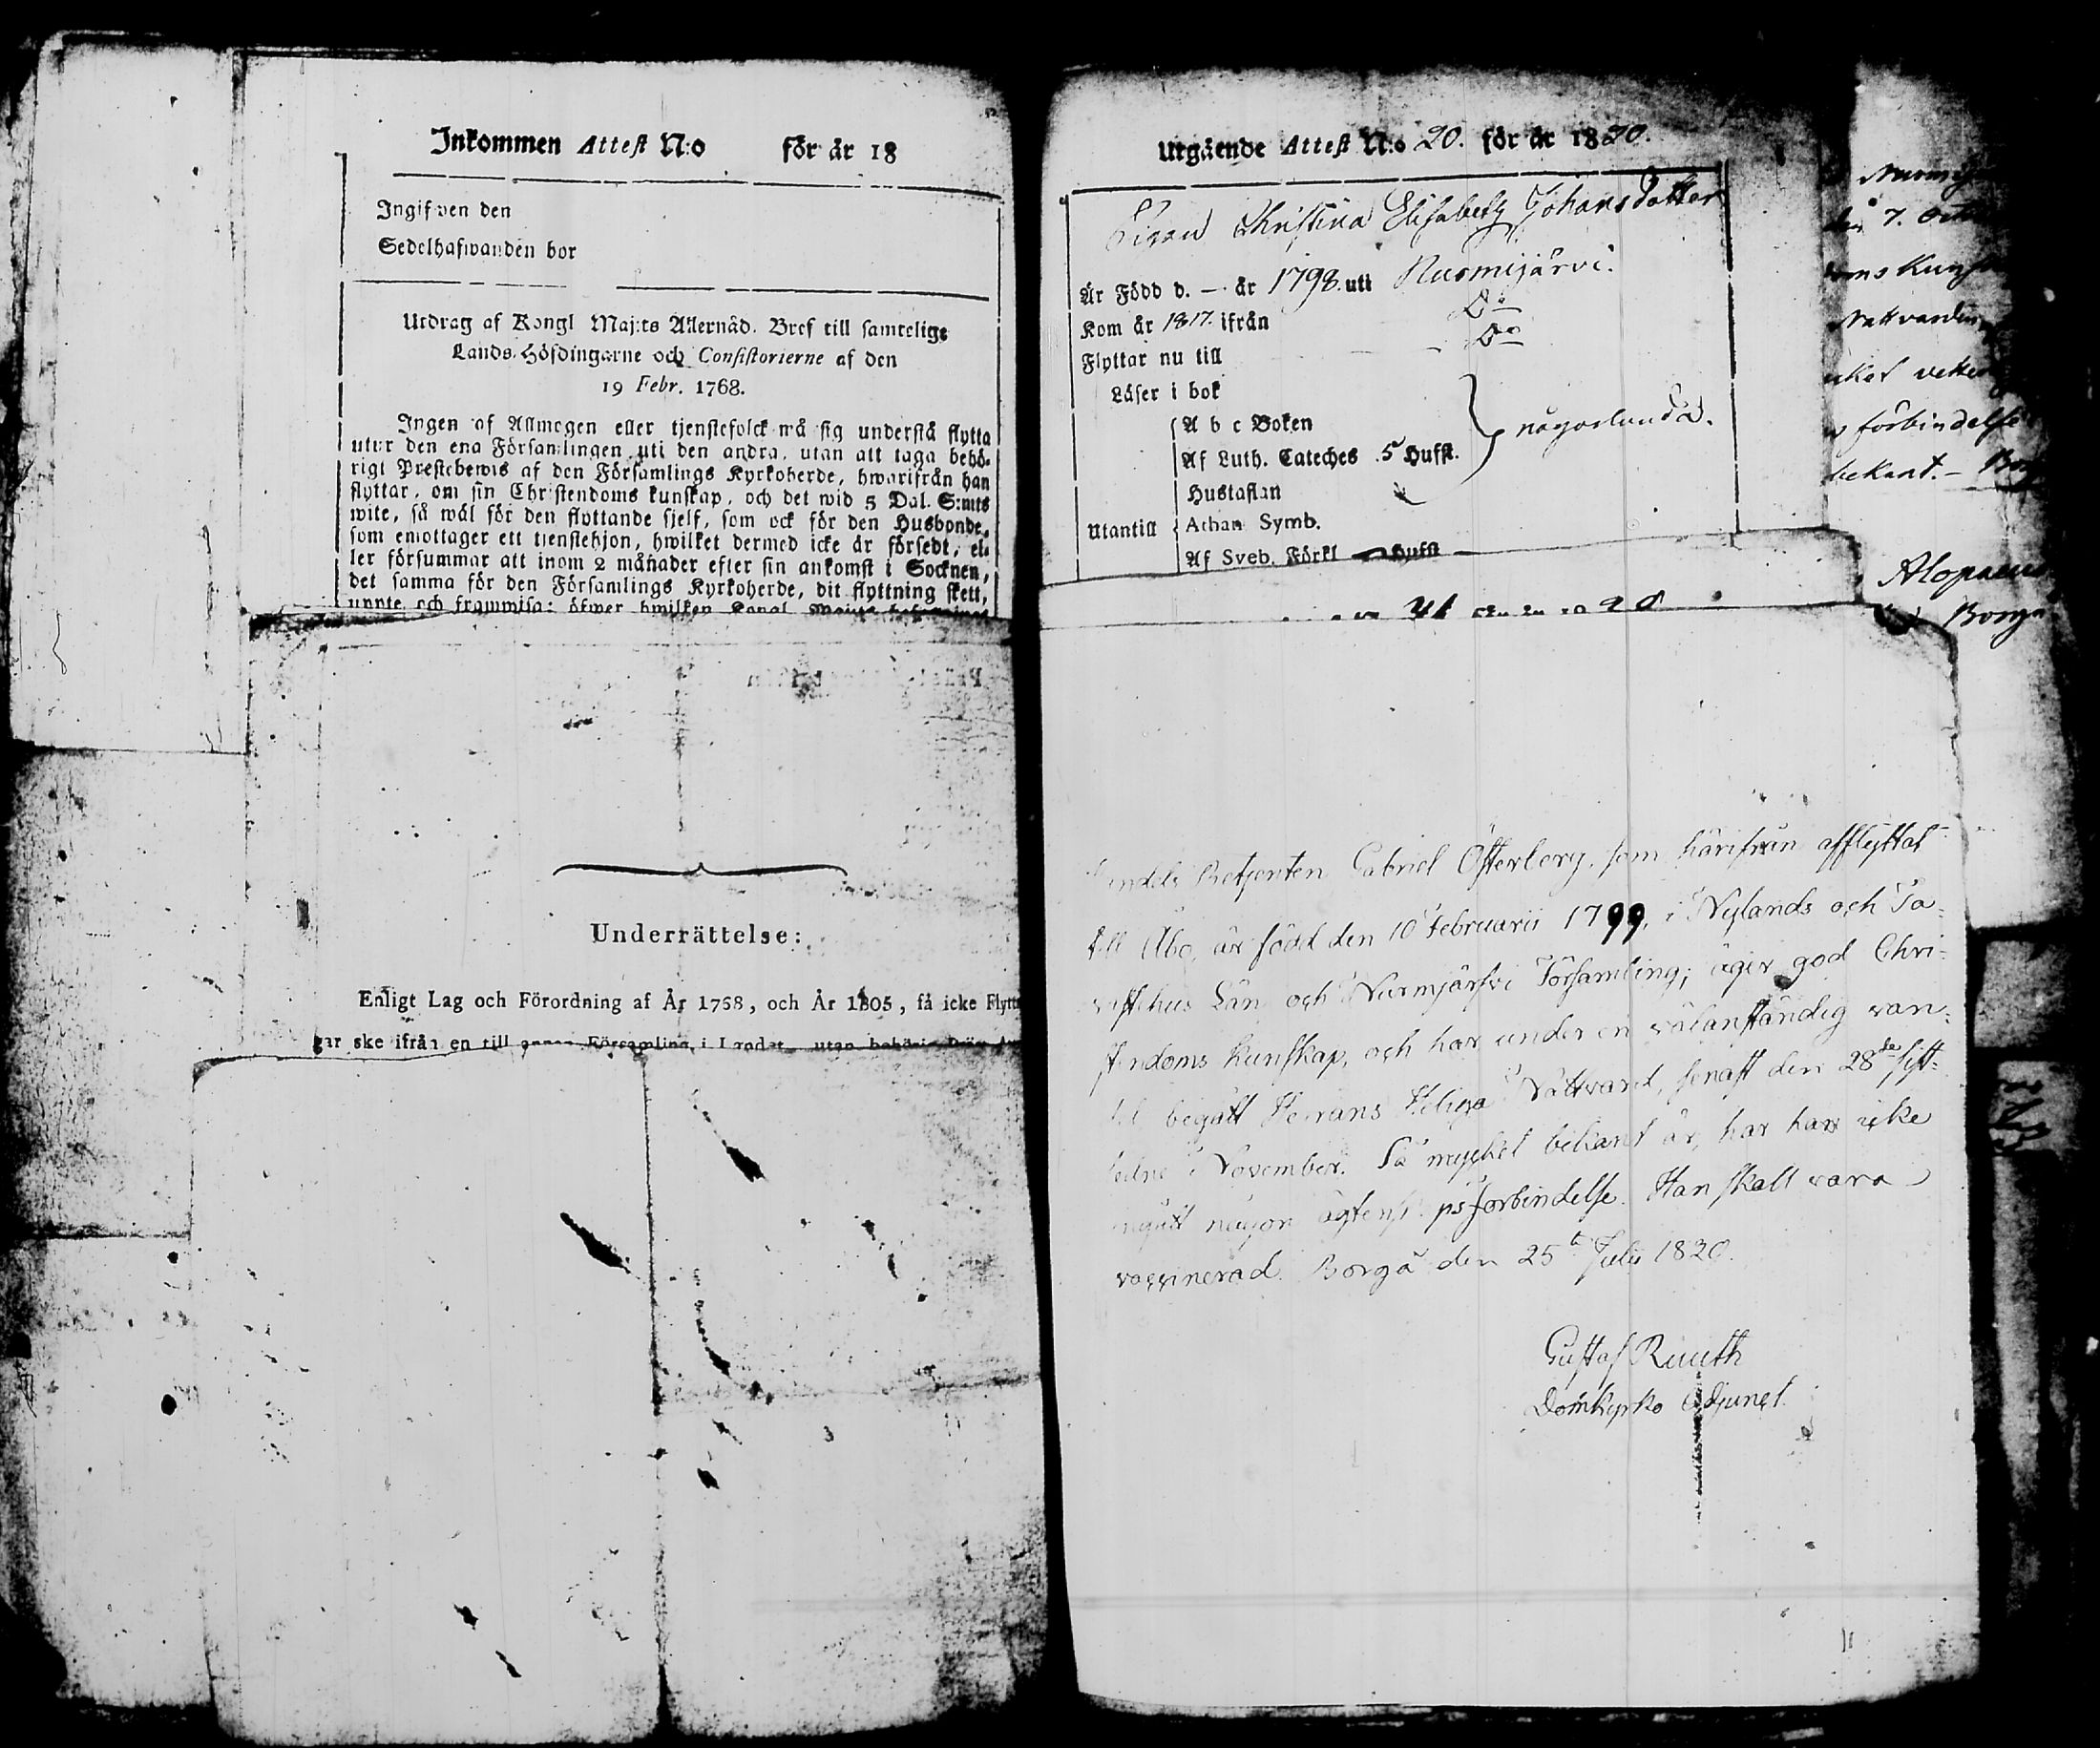 Inkommen Attest N:o för år 18
Ingifven den
Sedelhafwanden bor
Utdrag af Kongl Maj:ts Allernåd. Bref till samtelige
Lands-Höfdingarne och Consistorierne af den
19 Febr. 1768.
Ingen af Allmogen eller tjenstefolck må sig understå flytta
utur den ena Församlingen uti den andra, utan att taga behö-
rigt Prestebewis af den Församlings Kyrkoherde, hwarifrån han
flyttar, om sin Christendoms kunskap, och det wid 5 Dal. S:mts
wite, så wäl för den flyttande sjelf, som ock för den Husbonde,
som emottager ett tienstehjon, hwilket dermed icke är försedt, el-
ler försummar att inom 2 månader efter sin ankomst i Socknen,
det samma för den Församlings Kyrkoherde, dit flyttning skett,
uppte och framwisa; öfwer hwilken Kongl. Maj:ts
Underrättelse:
Enligt Lag och Förordning af År 1768, och År 1805, få icke Flytt
gar ske ifrån en till annan Församling i Landet, utan behörig
Utgående Attest N:o 20. för år 1820.
Pigan Christina Elisabeth Johansdotter
Är Född d. — år 1798. uti Nurmijärvi.
Kom år 1817. ifrån Do
Flyttar nu till Do
Läser i bok
A b c Boken
någorlunda.
Af Luth. Cateches 5 Hufst.
Hustaflan
Utantill Athan Symb.
Af Sveb. Förkl — Hufst —
21 20
Betjenten Gabriel Österberg, som härifrån afflyttat
till Åbo, är född den 10 Februarii 1799, i Nylands och Ta-
vastehus Län och Nurmjärfvi Församling; äger god Chri-
stendoms kunskap, och har under en välanständig van-
del begått Herrans Heliga Nattvard, senast den 28de sist-
ledne November. Så mycket bekant är, har han icke
ingått någon ägtenskapsförbindelse. Han skall vara
vaccinerad. Borgå den 25te Julii 1820.
Gustaf Ruuth
Domkyrko Adjunct.
den 7. Octo
Nattvarden
förbindelse
bekant. —
Alopaeus
Borgå